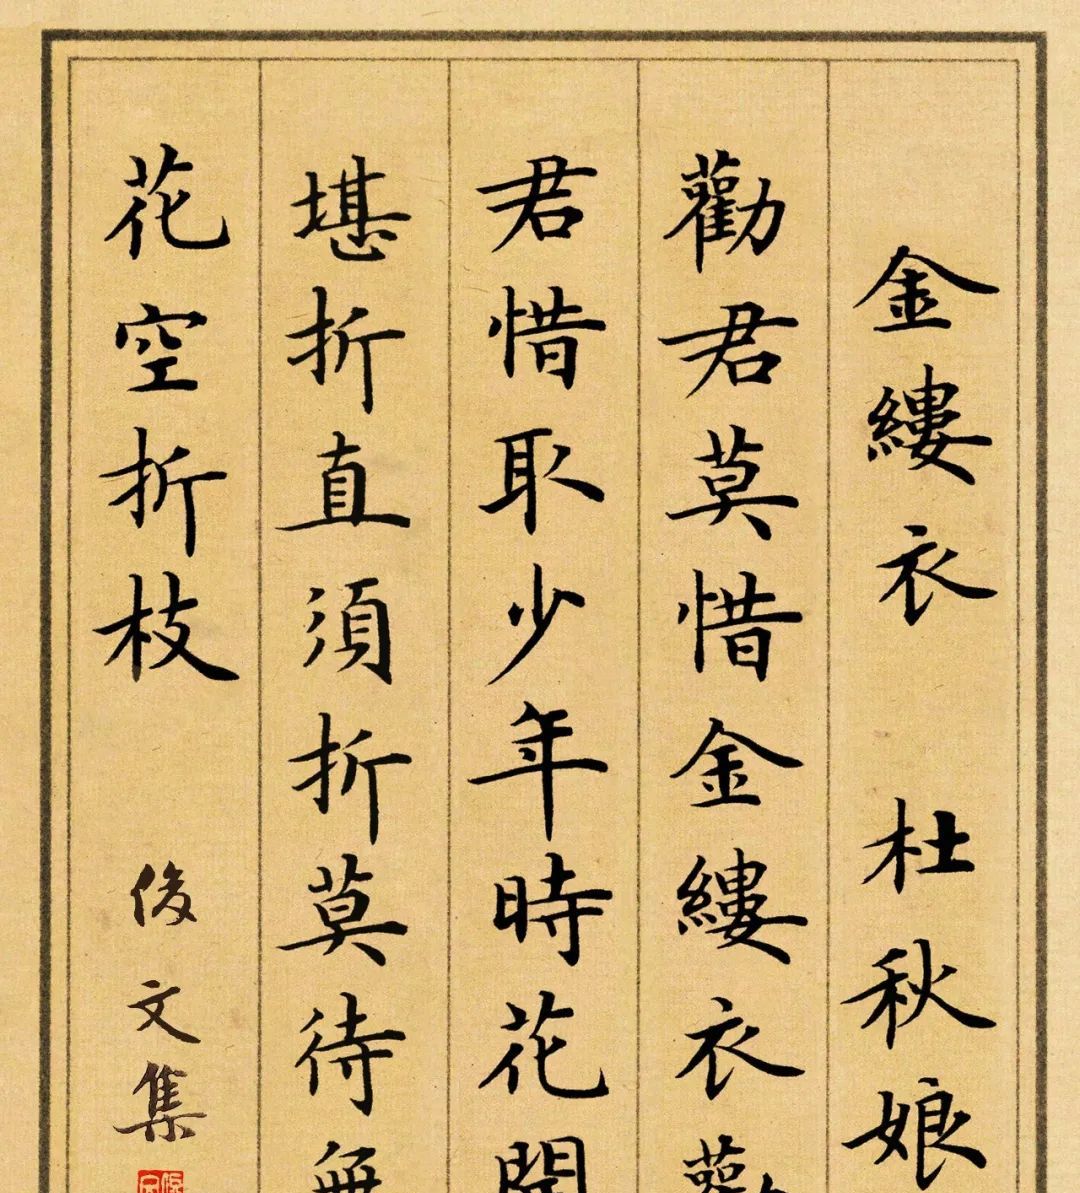 金縷衣 杜秋娘
勸君莫惜金縷衣勸
君惜取少年時花開
堪折直須折莫待無
花空折枝 俊文集